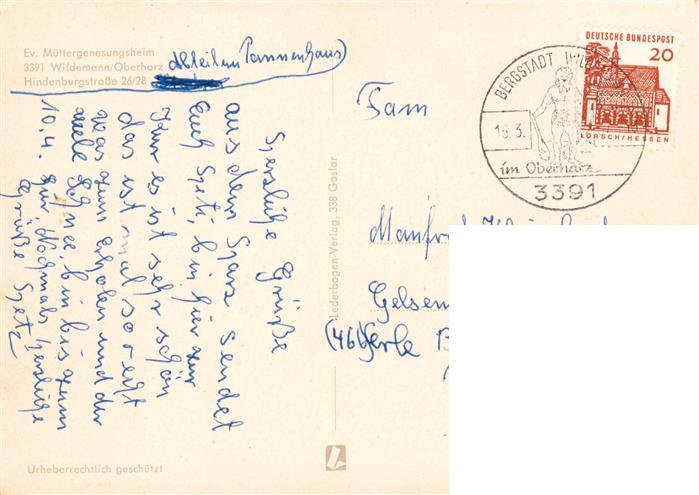 Ev. Müttergenesungsheim
3391 Wildemann/Oberharz
Hindenburgstraße 26/28
Abteilung Tannenhaus)
Herzliche Grüße
aus dem Harz sendet
Euch
bin hier zur
Kur es ist sehr schön
das ist mal so recht
was zum erholen und der
viele Schnee, bin bis zum
10.4. hier Nochmals herzliche
Grüße
Lederbogen-Verlag, 338 Goslar
Urheberrechtlich geschützt
BERGSTADT WILD
16.3.
im Oberharz
3391
DEUTSCHE BUNDESPOST
20
LORSCH/HESSEN
Fam
Manfred
Gelsen
(466)